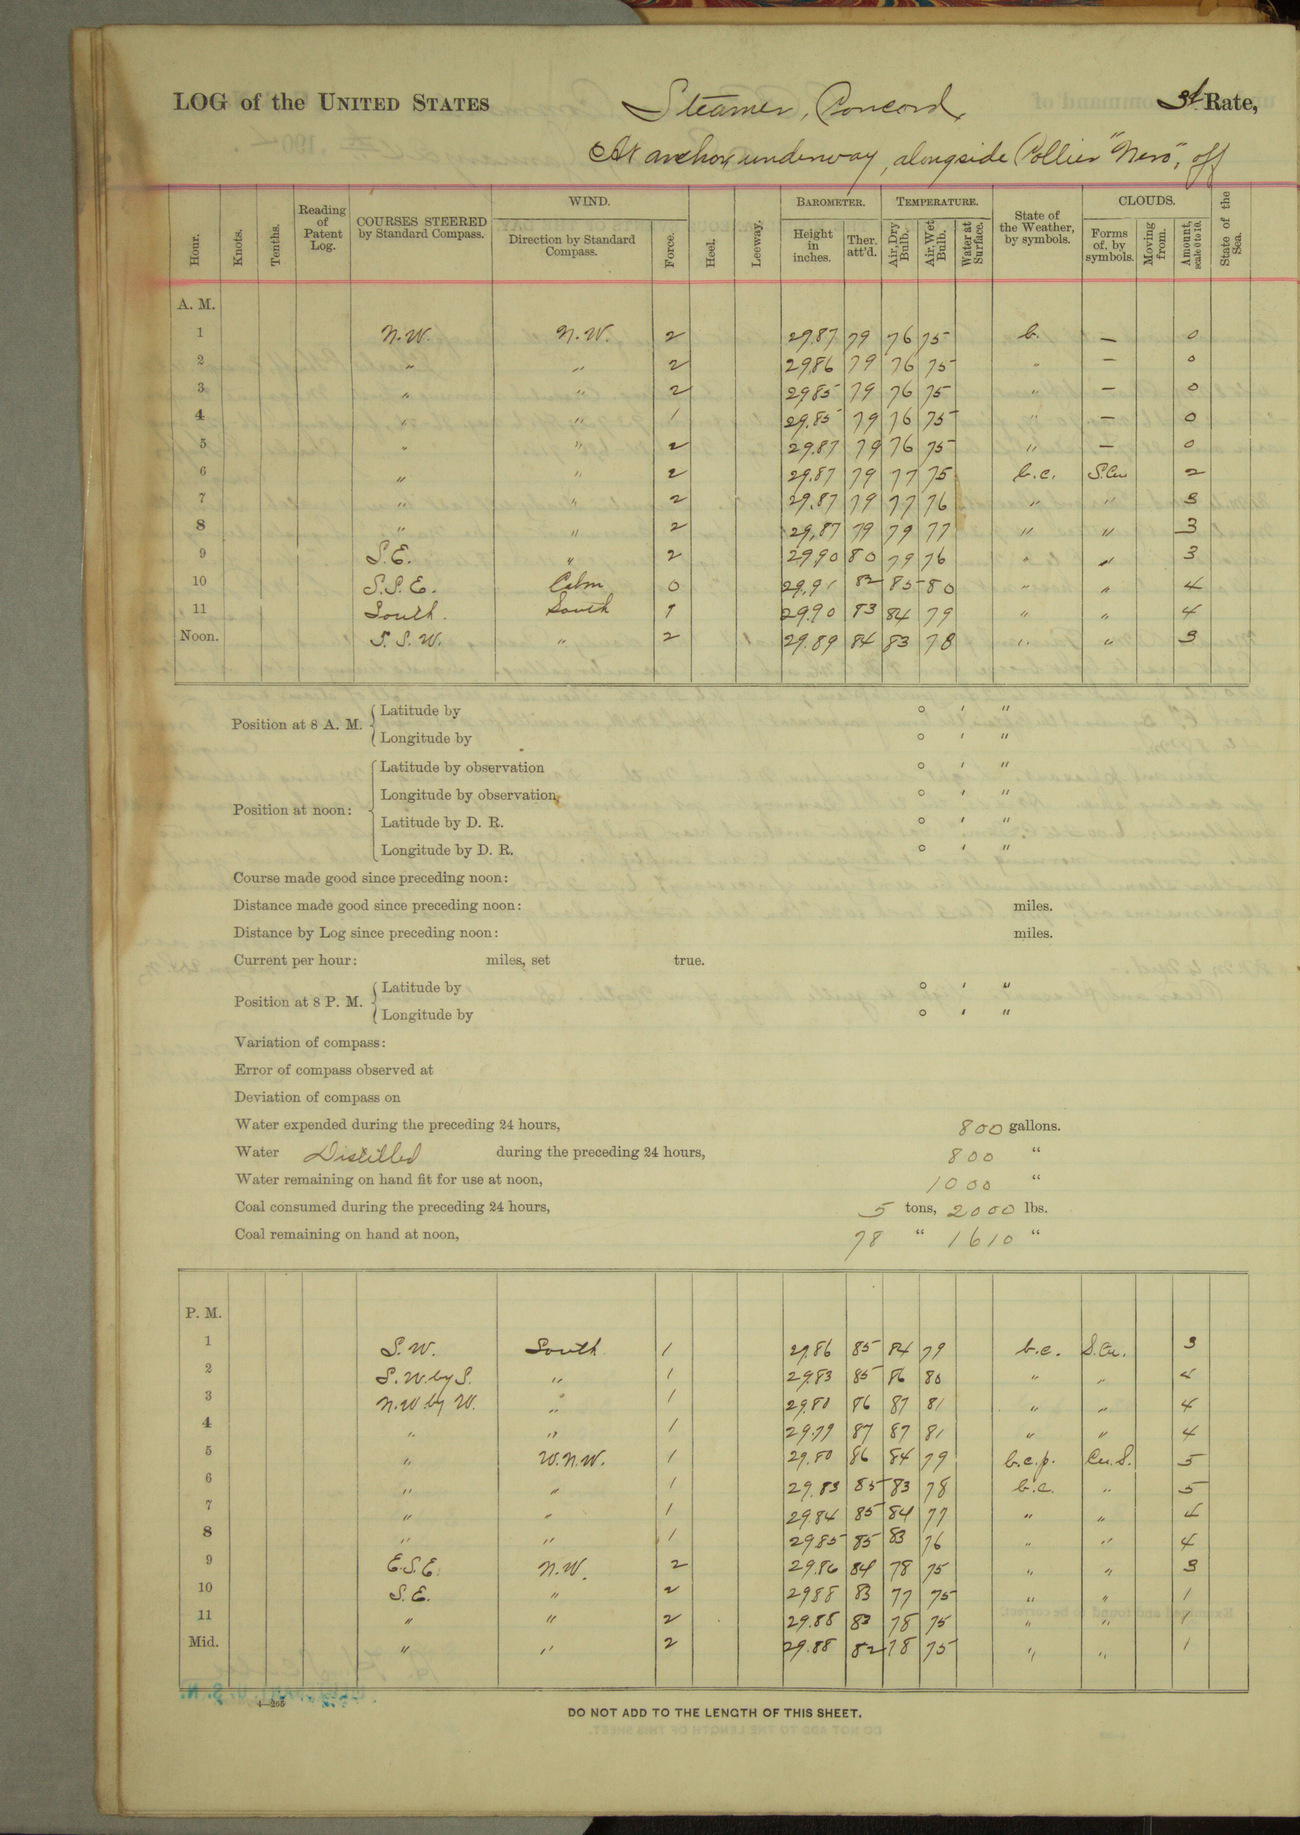 LOG of the UNITED STATES Steamer, Concord, 3d Rate,
At anchor, underway, alongside Collier "Nero", off
Hour. Knots. Tenths. Reading of Patent Log. COURSES STEERED by Standard Compass. WIND. Direction by Standard Compass. Force. Heel. Leeway. BAROMETER. Height in inches. Ther. att'd. TEMPERATURE. Air, Dry Bulb. Air, Wet Bulb. Water at Surface. State of the Weather, by symbols. CLOUDS. Forms of, by symbols. Moving from. Amount, scale 0 to 10. State of the Sea.
A. M.
1 N.W. N.W. 2 29.87 79 76 75 b. — 0
2 " " 2 29.86 79 76 75 " — 0
3 " " 2 29.85 79 76 75 " — 0
4 " " 1 29.85 79 76 75 " — 0
5 " " 2 29.87 79 76 75 " — 0
6 " " 2 29.87 79 77 75 b.c. S.Cu 2
7 " " 2 29.87 79 77 76 " " 3
8 " " 2 29.87 79 79 77 " " 3
9 S.E. " 2 29.90 80 79 76 " " 3
10 S.S.E. Calm 0 29.91 82 85 80 " " 4
11 South. South 1 29.90 83 84 79 " " 4
Noon. S.S.W. " 2 29.89 84 83 78 " " 3
Position at 8 A. M. Latitude by ° ′ ″
Longitude by ° ′ ″
Position at noon: Latitude by observation ° ′ ″
Longitude by observation ° ′ ″
Latitude by D. R. ° ′ ″
Longitude by D. R. ° ′ ″
Course made good since preceding noon:
Distance made good since preceding noon: miles.
Distance by Log since preceding noon: miles.
Current per hour: miles, set true.
Position at 8 P. M. Latitude by ° ′ ″
Longitude by ° ′ ″
Variation of compass:
Error of compass observed at
Deviation of compass on
Water expended during the preceding 24 hours, 800 gallons.
Water Distilled during the preceding 24 hours, 800 "
Water remaining on hand fit for use at noon, 1000 "
Coal consumed during the preceding 24 hours, 5 tons, 2000 lbs.
Coal remaining on hand at noon, 78 " 1610 "
P. M.
1 S.W. South 1 29.86 85 84 79 b.c. S.Cu. 3
2 S.W. by S. " 1 29.83 85 86 80 " " 4
3 N.W by W. " 1 29.80 86 87 81 " " 4
4 " " 1 29.79 87 87 81 " " 4
5 " W.N.W. 1 29.80 86 84 79 b.c.p. Cu.S. 5
6 " " 1 29.83 85 83 78 b.c. " 5
7 " " 1 29.84 85 84 77 " " 4
8 " " 1 29.85 85 83 76 " " 4
9 E.S.E. N.W. 2 29.86 84 78 75 " " 3
10 S.E. " 2 29.88 83 77 75 " " 1
11 " " 2 29.88 83 78 75 " " 1
Mid. " " 2 29.88 82 78 75 " " 1
4—205
DO NOT ADD TO THE LENGTH OF THIS SHEET.